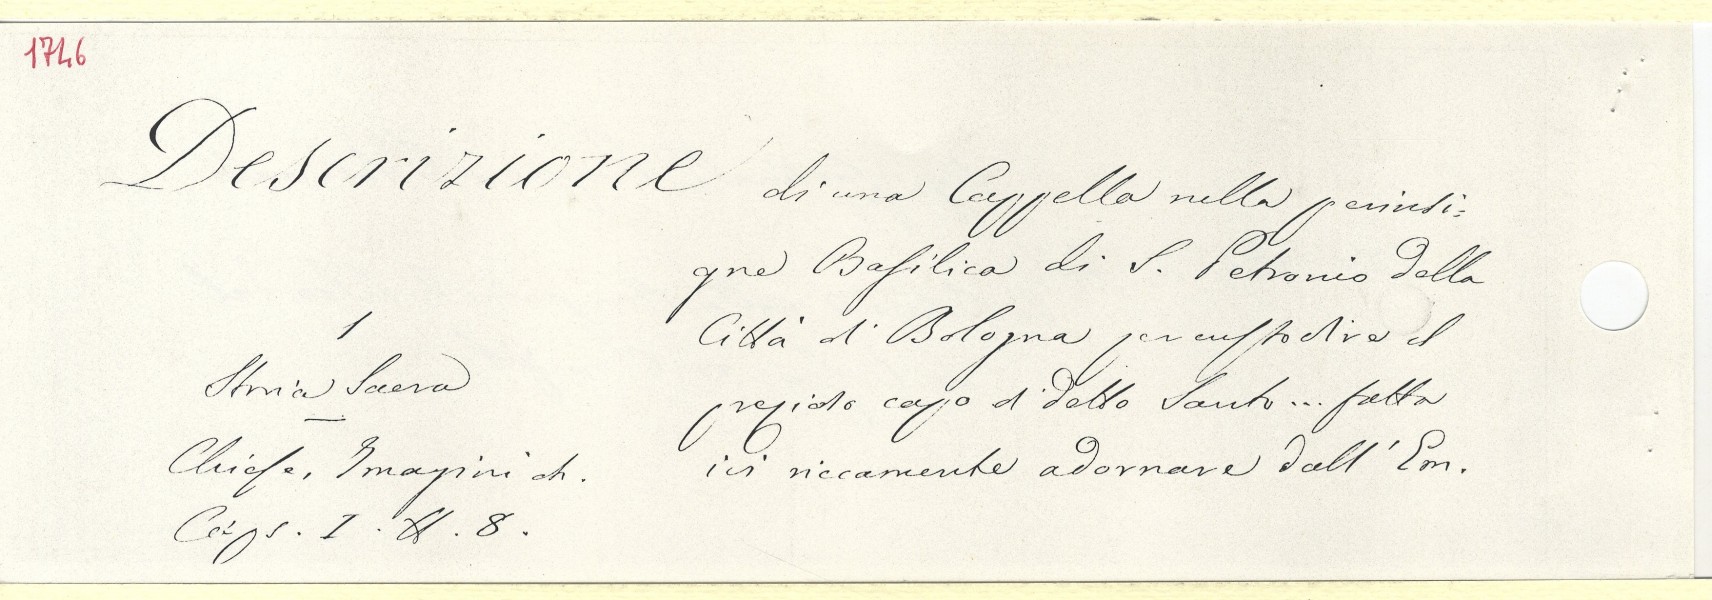 1746
Descrizione di una Cappella nella perinsi=
gne Basilica di S. Petronio della
Città di Bologna per custodire il
preziolo capo di detto Santo... fatta
ivi riccamente adornare dall' Em.
1
Storia Sacra
Chiese, Imagini &.
Caps. I. H. 8.